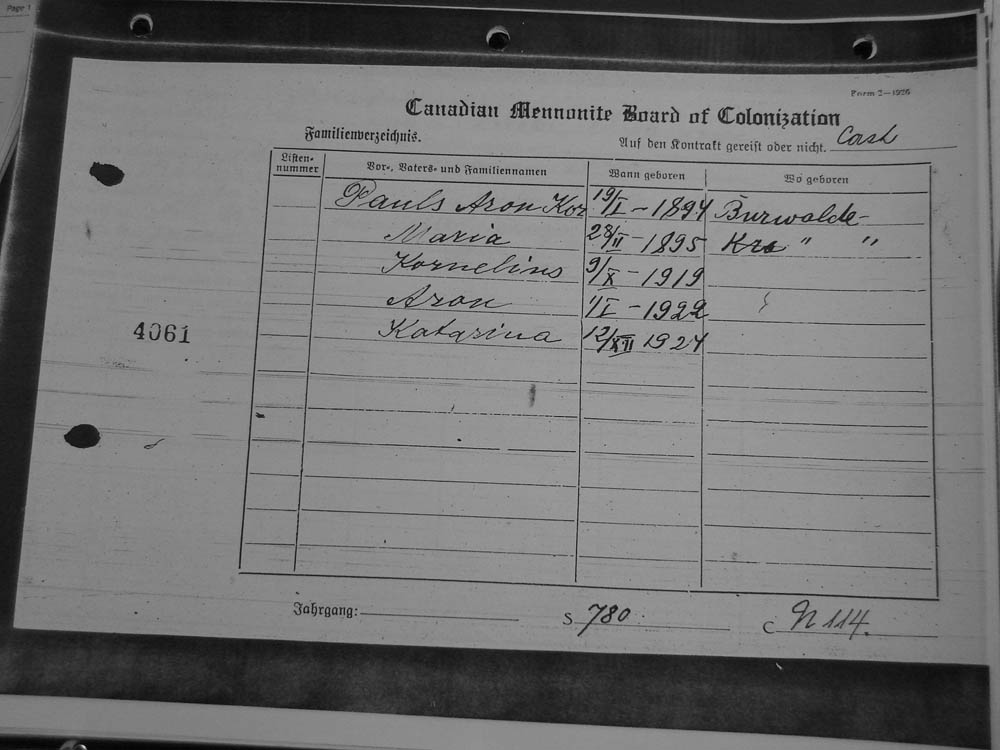 Page 1
Form 2—1926
Canadian Mennonite Board of Colonization
Familienverzeichnis.
Auf den Kontrakt gereist oder nicht. Cash
Listen-nummer Vor-, Vaters- und Familiennamen Wann geboren Wo geboren
Pauls Aron Kor 19/I – 1894 Burwalde –
Maria 28/II – 1895 " "
Kornelius 9/X – 1919
Aron 1/I – 1922
Katarina 12/XII 1924
4061
Jahrgang: S 780 C N 114.